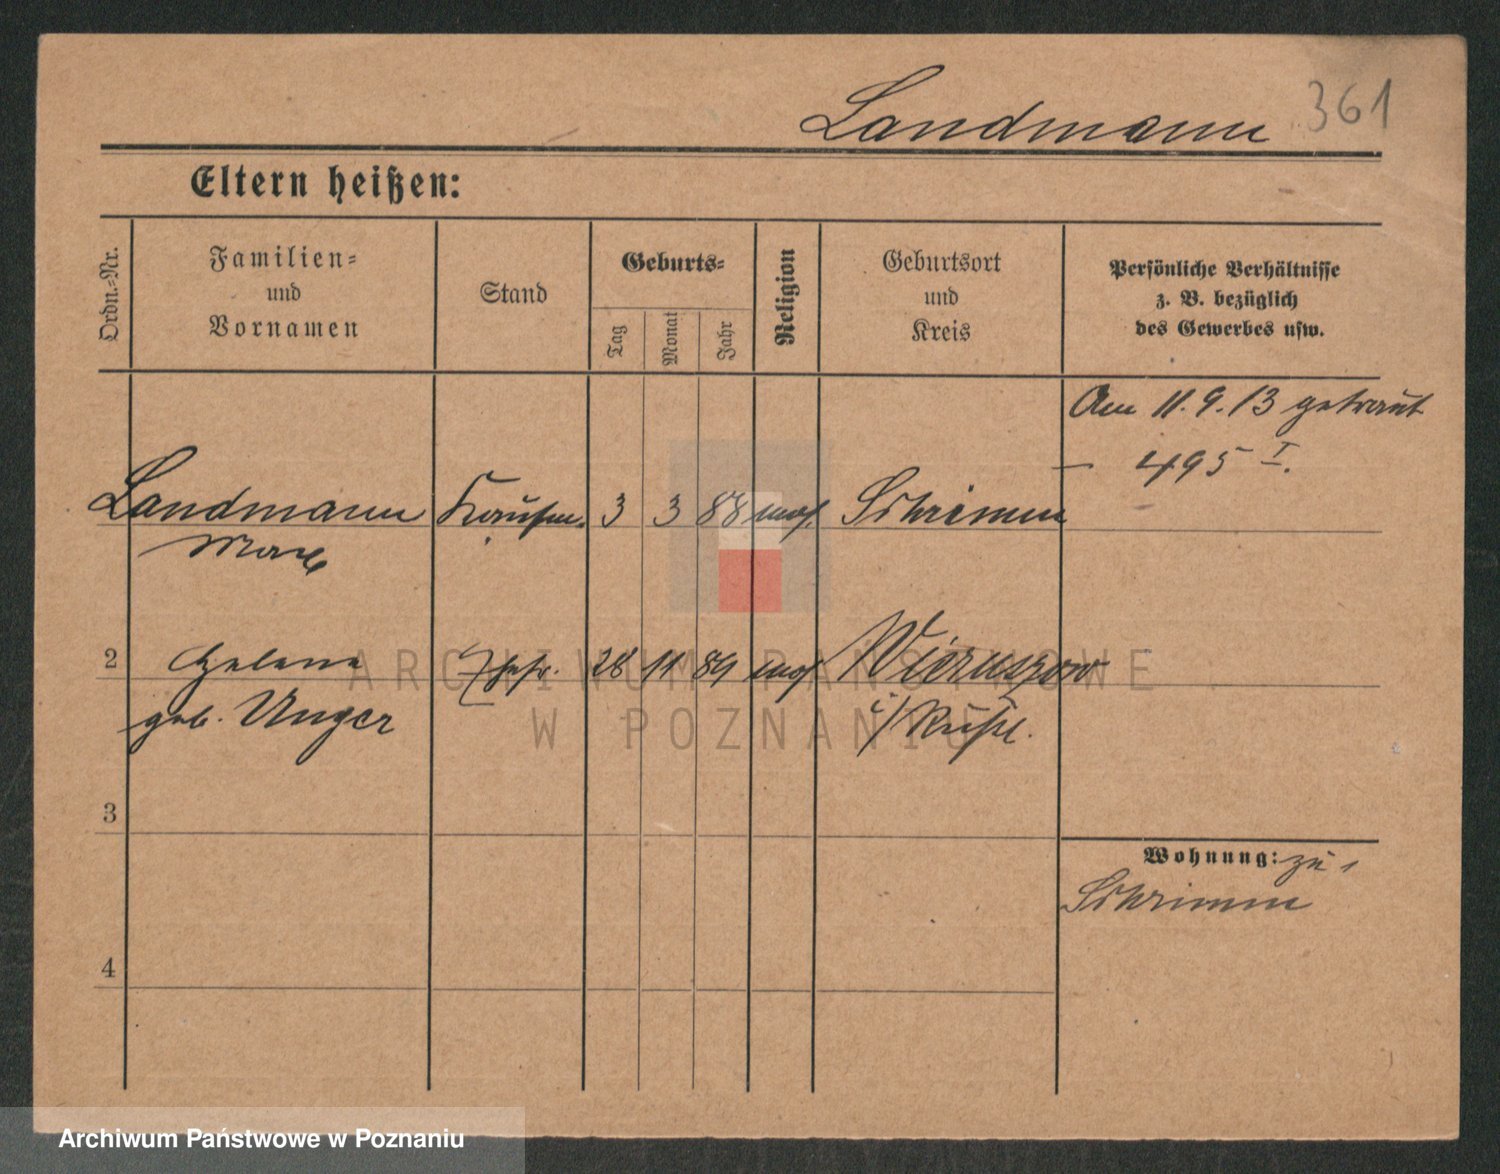 Landmann 361
Eltern heißen:
Ordn.=Nr.
Familien=
und
Vornamen
Stand
Geburts=
Tag
Monat
Jahr
Religion
Geburtsort
und
Kreis
Persönliche Verhältnisse
z. B. bezüglich
des Gewerbes usw.
Am 11.9.13 getraut
– 495 I.
Landmann Kaufm. 3 3 88 mos. Schrimm
Max
2 Helene Ehefr. 28 11 89 mos Wieruszow
geb. Unger i/ Rußl.
3
Wohnung: zu
Schrimm
4
ARCHIWUM PAŃSTWOWE
W POZNANIU
Archiwum Państwowe w Poznaniu